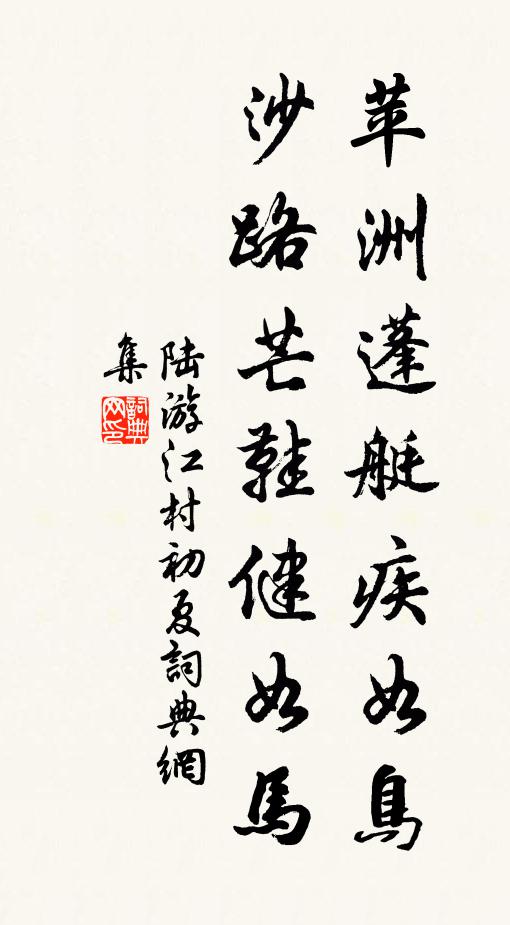 苹洲蓬艇疾如鳥
沙路芒鞋健如馬
陆游江村初夏詞典網
集
詞典
网印